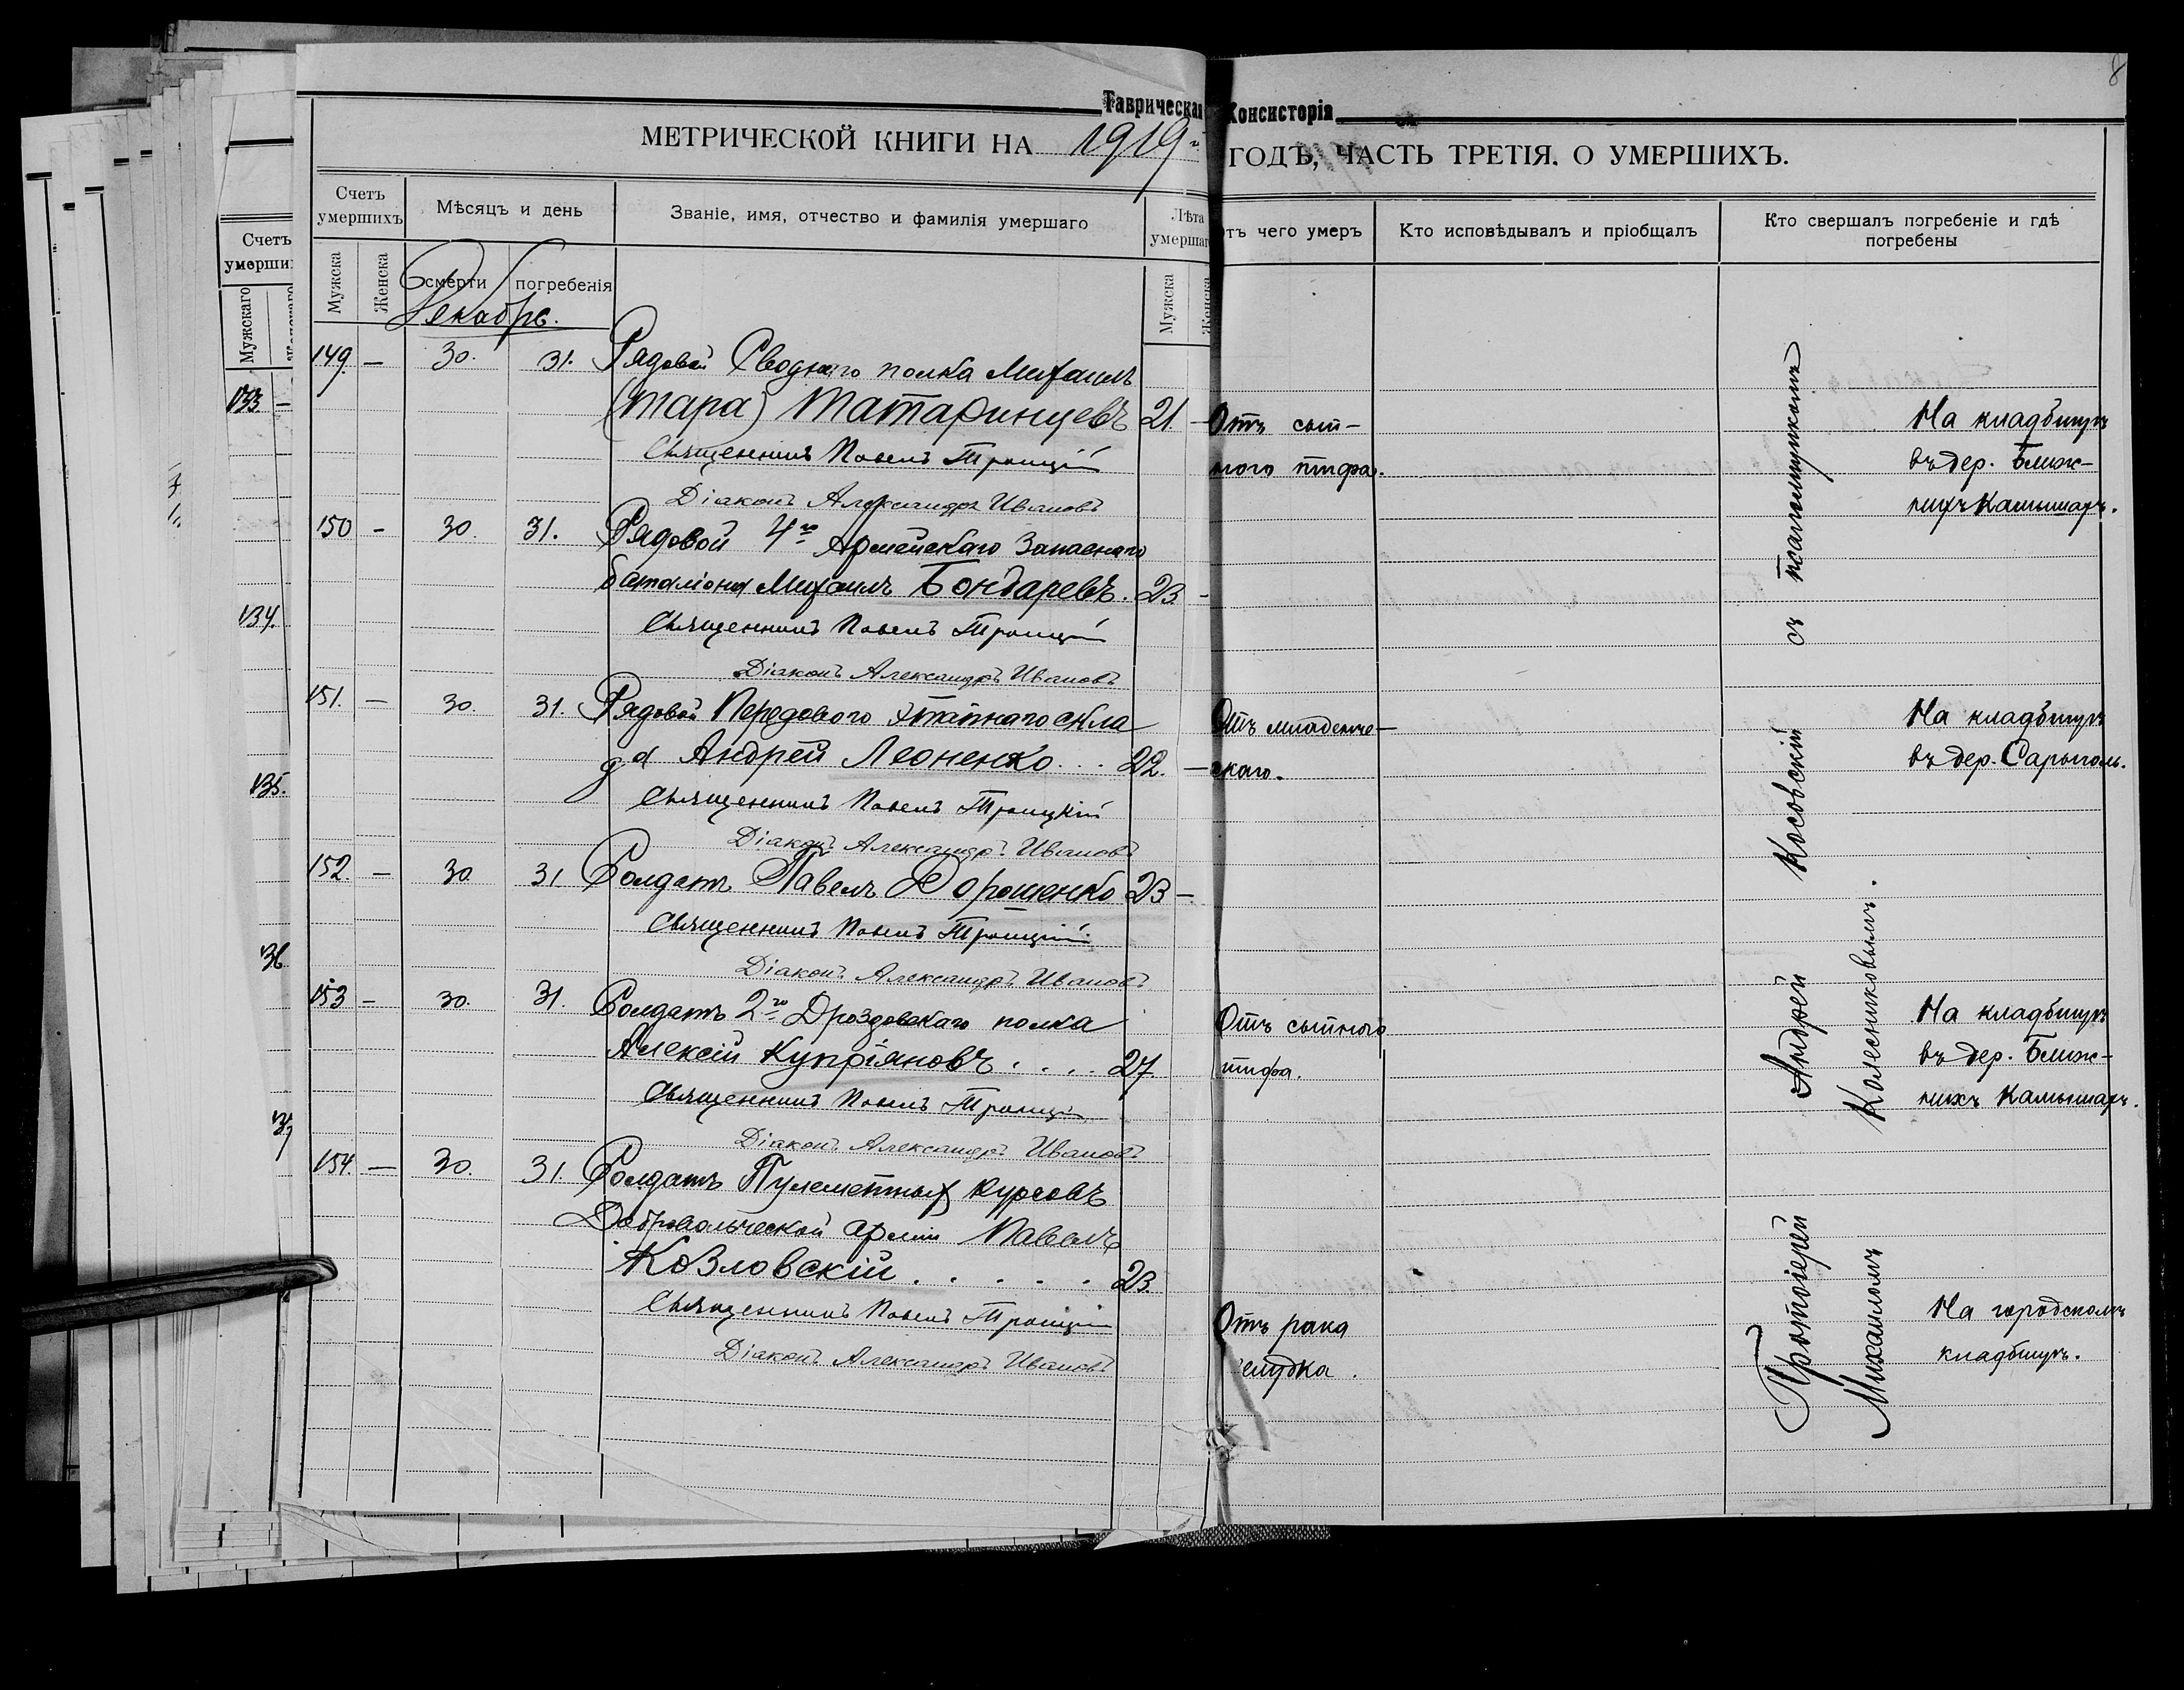 8
Таврическая Консисторія
МЕТРИЧЕСКОЙ КНИГИ НА 1919 й ГОДЪ, ЧАСТЬ ТРЕТІЯ. О УМЕРШИХЪ.
Счетъ умершихъ
Мѣсяцъ и день
Званіе, имя, отчество и фамилія умершаго
Лѣта умершаго
Отъ чего умеръ
Кто исповѣдывалъ и пріобщалъ
Кто свершалъ погребеніе и гдѣ погребены
Мужска
Женска
смерти
погребенія
Мужска
Женска
Декабрь.
149. — 30. 31. Рядовой Сводного полка Михаилъ
(Тара) Татаринцевъ 21 —
Священникъ Павелъ Троицкій
Діаконъ Александръ Ивановъ
150 - 30. 31. Рядовой 4го Армейскаго Запаснаго
баталіона Михаилъ Бондаревъ. 23. -
Священникъ Павелъ Троицкій
Діаконъ Александръ Ивановъ
151. — 30. 31. Рядовой Передового Этапнаго скла
да Андрей Леоненко... 22. —
Священникъ Павелъ Троицкій
Діаконъ Александръ Ивановъ
152 — 30 31 Солдатъ Павелъ Дорошенко 23 —
Священникъ Павелъ Троицкій
Діаконъ Александръ Ивановъ
153 — 30. 31. Солдатъ 2го Дроздовскаго полка
Алексій Купріяновъ.... 27
Священникъ Павелъ Троицкій
Діаконъ Александръ Ивановъ
154. — 30. 31. Солдатъ Пулеметныхъ курсовъ
Добровольческой арміи Павелъ
Козловскій...... 23.
Священникъ Павелъ Троицкій
Діаконъ Александръ Ивановъ
Отъ сып-
ного тифа.
Отъ младенче-
скаго.
Отъ сыпного
тифа.
Отъ рака
желудка.
Протоіерей Андрей Косовскій съ псаломщикомъ
Михаиломъ Колесниковымъ.
На кладбищѣ
въ дер. Ближ-
нихъ Камышахъ.
На кладбищѣ
въ дер. Сарыголь.
На кладбищѣ
въ дер. Ближ-
нихъ Камышахъ.
На городскомъ
кладбищѣ.
Счетъ
умерши
Мужскаго
133 —
134.
135.
136
137